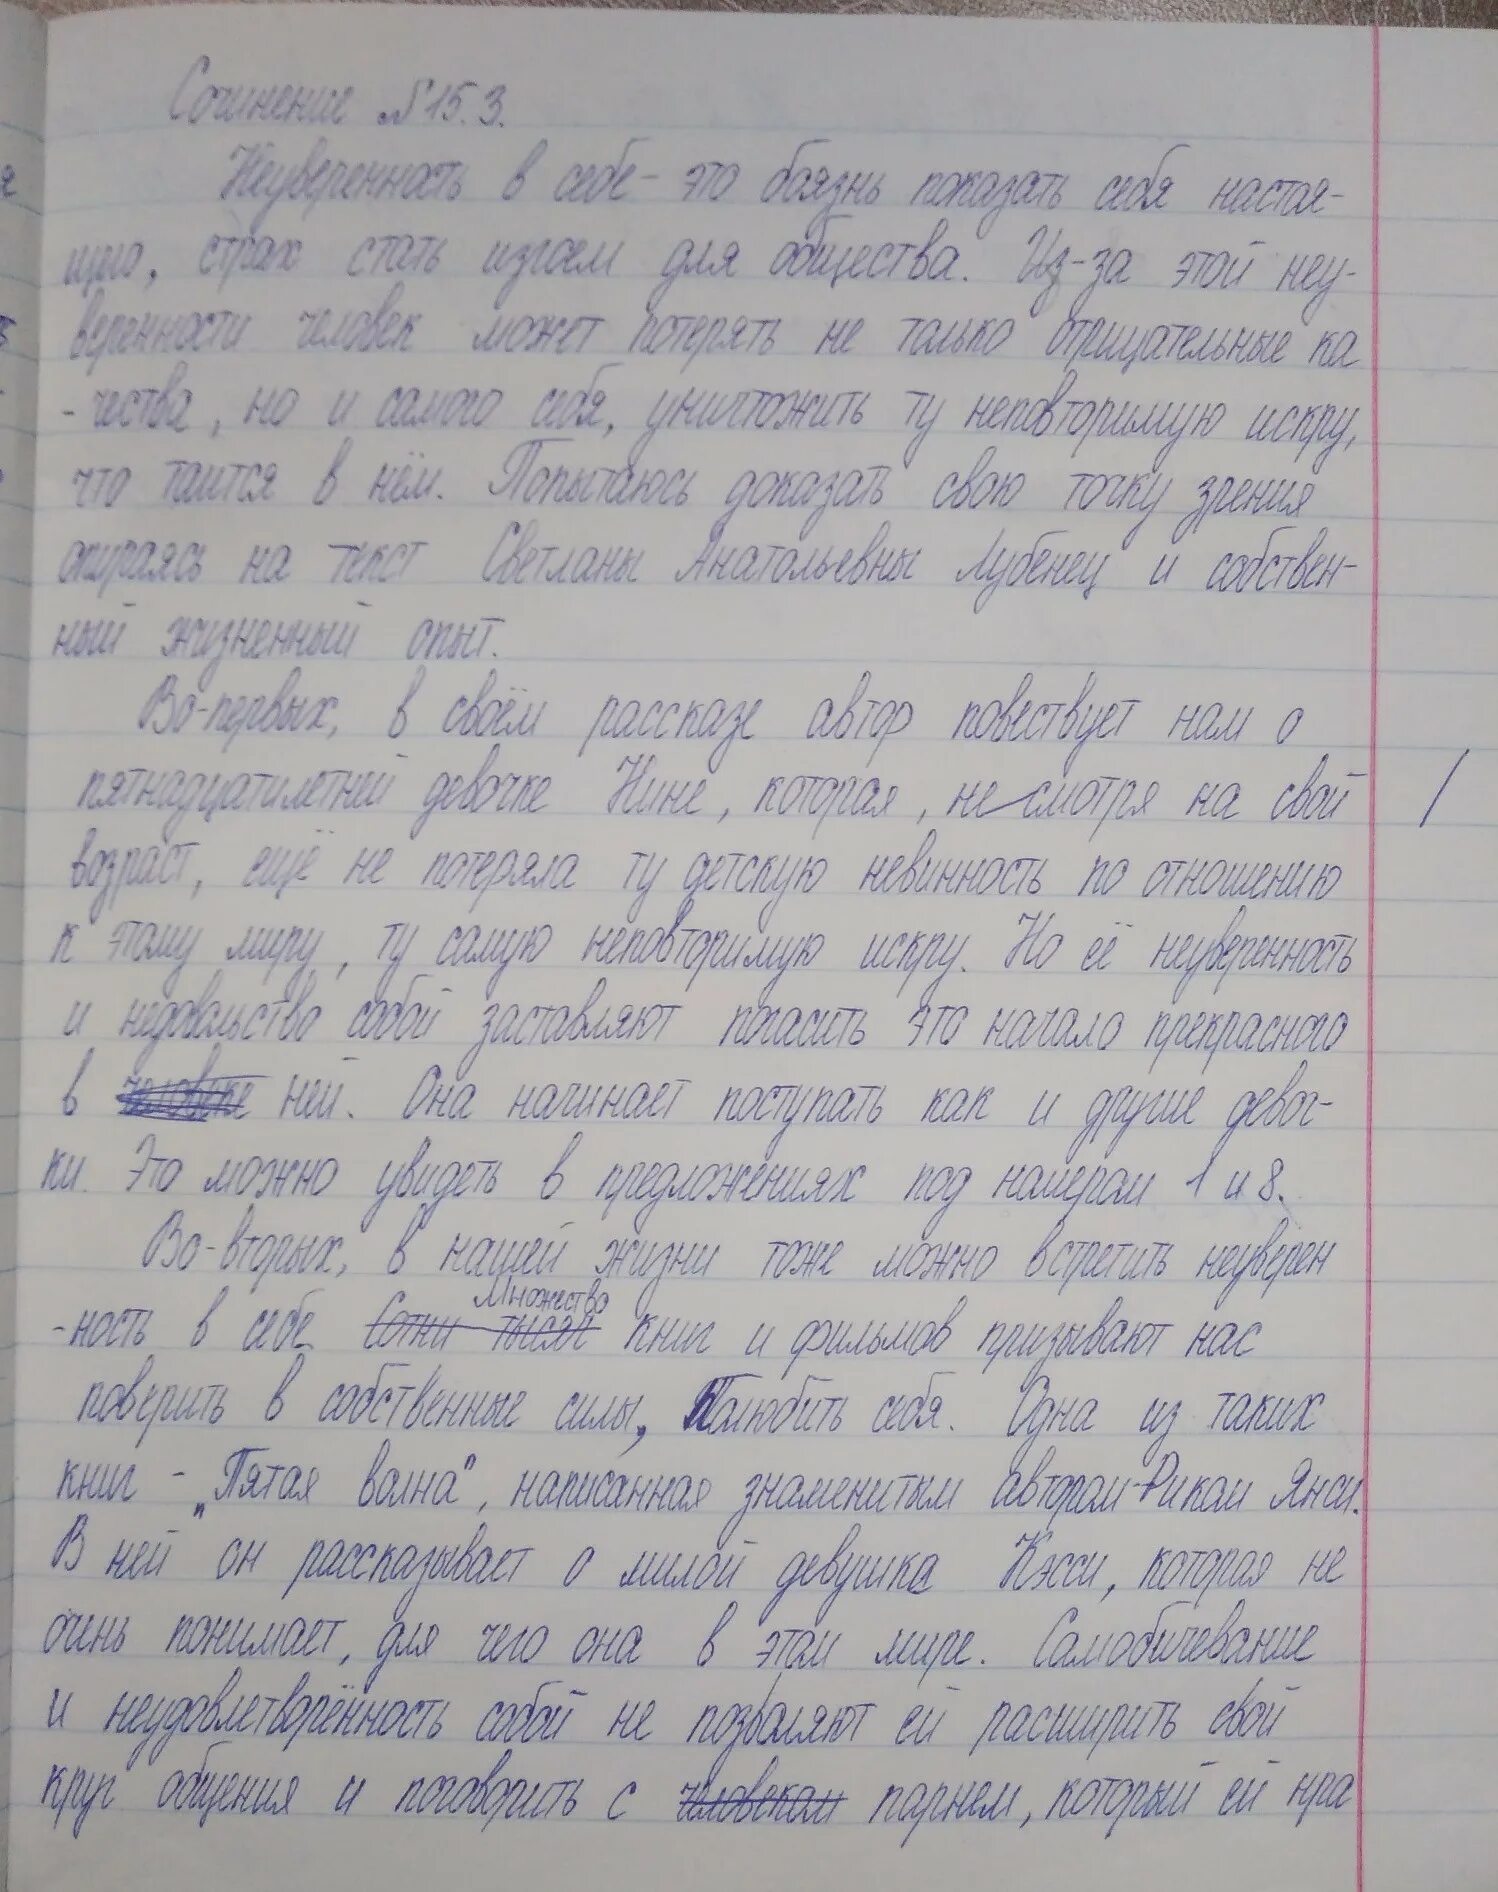 Сочинение №15.3.
Неуверенность в себе - это боязнь показать себя настоя-
щего, страх стать изгоем для общества. Из-за этой неу-
веренности человек может потерять не только отрицательные ка
-чества, но и самого себя, уничтожить ту неповторимую искру,
что таится в нём. Попытаюсь доказать свою точку зрения
опираясь на текст Светланы Анатольевны Лубенец и собствен-
ный жизненный опыт.
Во-первых, в своём рассказе автор повествует нам о
пятнадцатилетней девочке Нине, которая, не смотря на свой
возраст, ещё не потеряла ту детскую невинность по отношению
к этому миру, ту самую неповторимую искру. Но её неуверенность
и недовольство собой заставляют погасить это начало прекрасного
в человеке ней. Она начинает поступать как и другие девоч-
ки. Это можно увидеть в предложениях под номером 1 и 8.
Во-вторых, в нашей жизни тоже можно встретить неуверен
Множество
-ность в себе Сотни тысяч книг и фильмов призывают нас
поверить в собственные силы, Полюбить себя. Одна из таких
книг - „Пятая волна", написанная знаменитым автором-Рикам Янси.
В ней он рассказывает о милой девушка Кэсси, которая не
очень понимает, для чего она в этом мире. Самобичевание
и неудовлетворённость собой не позволяют ей расширить свой
круг общения и поговорить с человеком парнем, который ей нра